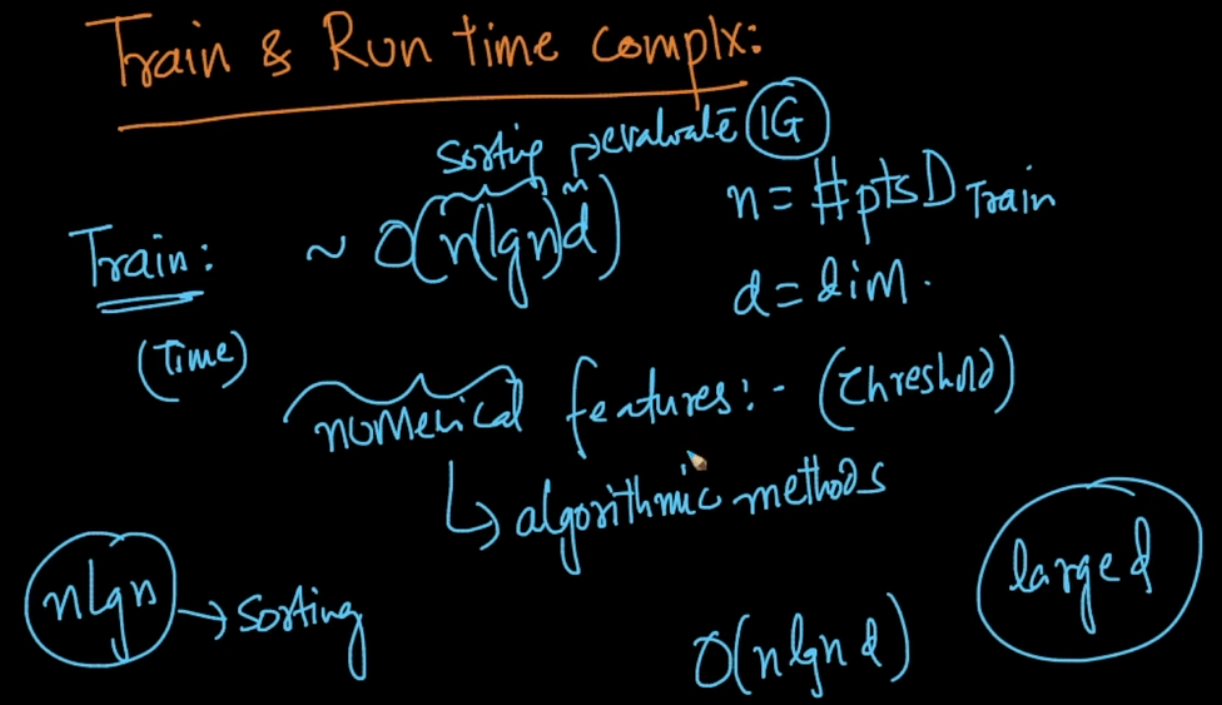 Train & Run time complx:
sorting → evaluate IG
Train: ~ O(n(lgn)d)
n = #pts D Train
(Time)
d = dim.
numerical features:- (Threshold)
↳ algorithmic methods
nlgn → sorting
large d
O(nlgn d)